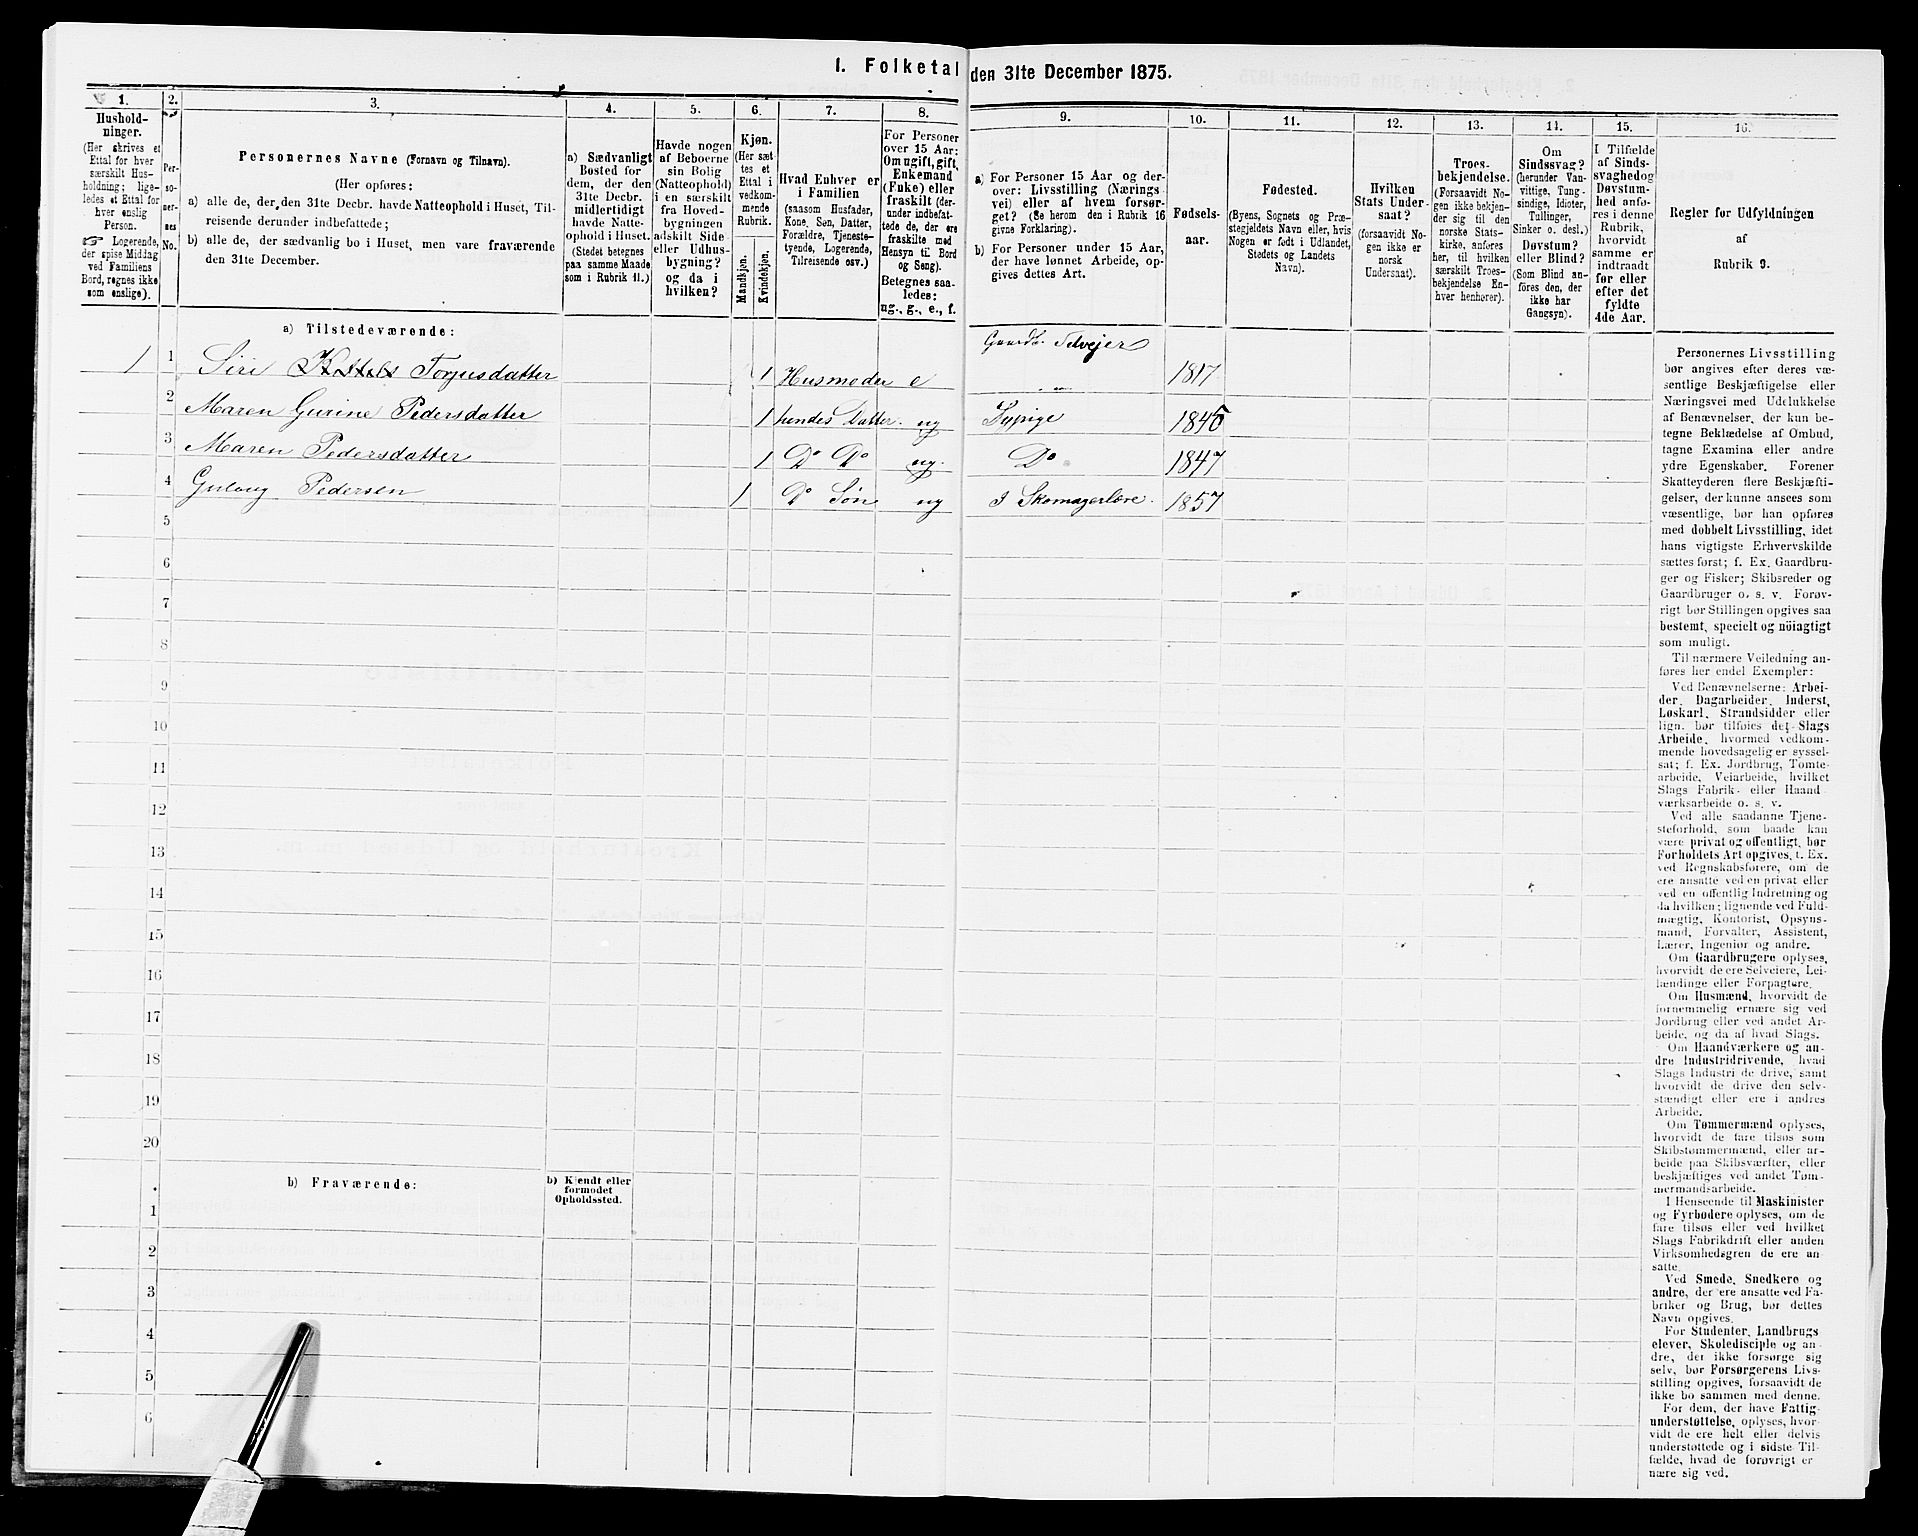 1. Folketal den 31te December 1875.
1.
Husholdninger.
(Her skrives et
Ettal for hver
særskilt Husholdning; ligeledes et Ettal for
hver enslig
Person.
☞ Logerende,
der spise Middag
ved Familiens
Bord, regnes ikke
som enslige).
2.
Personernes
No.
3.
Personernes Navne (Fornavn og Tilnavn).
(Her opføres:
a) alle de, der den 31te Decbr. havde Natteophold i Huset, Tilreisende derunder indbefattede;
b) alle de, der sædvanlig bo i Huset, men vare fraværende
den 31te December.
4.
a) Sædvanligt
Bosted for
dem, der den
31te Decbr.
midlertidigt
havde Natteophold i Huset.
(Stedet betegnes
paa samme Maade
som i Rubrik 11.)
5.
Havde nogen
af Beboerne
sin Bolig
(Natteophold)
i en særskilt
fra Hovedbygningen
adskilt Side
eller Udhusbygning?
og da i
hvilken?
6.
Kjøn.
(Her sæt
tes et
Ettal i
vedkommende
Rubrik.
Mandkjøn.
Kvindekjøn.
7.
Hvad Enhver er
i Familien
(saasom Husfader,
Kone, Søn, Datter,
Forældre, Tjenestetyende, Logerende,
Tilreisende osv.)
8.
For Personer
over 15 Aar:
Om ugift, gift,
Enkemand
(Enke) eller
fraskilt (derunder indbefattede de, der ere
fraskilte med
Hensyn til Bord
og Seng).
Betegnes saaledes:
ug., g., e., f.
9.
a) For Personer 15 Aar og derover: Livsstilling (Næringsvei) eller af hvem forsørget? (Se herom den i Rubrik 16
givne Forklaring).
b) For Personer under 15 Aar,
der have lønnet Arbeide, opgives dettes Art.
10.
Fødselsaar.
11.
Fødested.
(Byens, Sognets og Præstegjeldets Navn eller, hvis
Nogen er født i Udlandet,
Stedets og Landets
Navn).
12.
Hvilken
Stats Undersaat?
(forsaavidt Nogen ikke er
norsk
Undersaat).
13.
Troesbekjendelse.
(Forsaavidt Nogen ikke bekjender sig til den
norske Statskirke, anføres
her, til hvilken
særskilt Troesbekjendelse Enhver henhører).
14.
Om
Sindssvag?
(herunder Vanvittige, Tungsindige, Idioter,
Tullinger,
Sinker o. desl.)
Døvstum?
eller Blind?
(Som Blind anføres den, der
ikke har
Gangsyn).
15.
I Tilfælde
af Sindssvaghed og
Døvstumhed anføres i denne
Rubrik,
hvorvidt
samme er
indtraadt
før eller
efter det
fyldte
4de Aar.
16.
Regler for Udfyldningen
af
Rubrik 9.
a) Tilstedeværende:
Gaardb. Selvejer
1 1 Siri Torjusdatter 1 Husmoder e „ 1817
2 Maren Gurine Pedersdatter 1 hendes Datter ug 1845
3 Maren Pedersdatter 1 Do Do ug. Do 1847
4 Pedersen 1 Do Søn ug I Skomagerlære. 1857
5
6
7
8
9
10
11
12
13
14
15
16
17
18
19
20
b) Fraværende:
b) Kjendt eller
formodet
Opholdssted.
1
2
3
4
5
6
Personernes Livsstilling
bør angives efter deres væsentlige Beskjæftigelse eller
Næringsvei med Udelukkelse
af Benævnelser, der kun betegne Beklædelse af Ombud,
tagne Examina eller andre
ydre Egenskaber. Forener
Skatteyderen flere Beskjæftigelser, der kunne ansees som
væsentlige, bør han opføres
med dobbelt Livsstilling, idet
hans vigtigste Erhvervskilde
sættes først; f. Ex. Gaardbruger og Fisker; Skibsreder og
Gaardbruger o. s. v. Forøvrigt bør Stillingen opgives saa
bestemt, specielt og nøiagtigt
som muligt.
Til nærmere Veiledning anføres her endel Exempler:
Ved Benævnelserne: Arbeider, Dagarbeider, Inderst,
Løskarl, Strandsidder eller
lign. bør tilføies det Slags
Arbeide, hvormed vedkommende hovedsagelig er sysselsat; f. Ex. Jordbrug, Tomtearbeide, Veiarbeide, hvilket
Slags Fabrik- eller Haandværksarbeide o. s. v.
Ved alle saadanne Tjenesteforhold, som baade kan
være privat og offentligt, bør
Forholdets Art opgives, f. Ex.
ved Regnskabsførere, om de
ere ansatte ved en privat eller
ved en offentlig Indretning og
da hvilken; lignende ved Fuldmægtig, Kontorist, Opsynsmand, Forvalter, Assistent,
Lærer, Ingeniør og andre.
Om Gaardbrugere oplyses,
hvorvidt de ere Selveiere, Leilændinge eller Forpagtere.
Om Husmænd, hvorvidt de
fornemmelig ernære sig ved
Jordbrug eller ved andet Arbeide, og da af hvad Slags.
Om Haandværkere og andre Industridrivende, hvad
Slags Industri de drive, samt
hvorvidt de drive den selvstændigt eller ere i andres
Arbeide.
Om Tømmermænd oplyses,
hvorvidt de fare tilsøs som
Skibstømmermænd, eller arbeide paa Skibsværfter, eller
beskjæftiges ved andet Tømmermandsarbeide.
I Henseende til Maskinister
og Fyrbødere oplyses, om de
fare tilsøs eller ved hvilket
Slags Fabrikdrift eller anden
Virksomhedsgren de ere ansatte.
Ved Smede, Snedkere og
andre, der ere ansatte ved Fabriker og Brug, bør dettes
Navn opgives.
For Studenter, Landbrugselever, Skoledisciple og andre, der ikke forsørge sig
selv, bør Forsørgerens Livsstilling opgives, forsaavidt de
ikke bo sammen med denne.
For dem, der have Fattigunderstøttelse, oplyses, hvorvidt de ere helt eller delvis
understøttede og i sidste Tilfælde, hvad de forøvrigt er
nære sig ved.